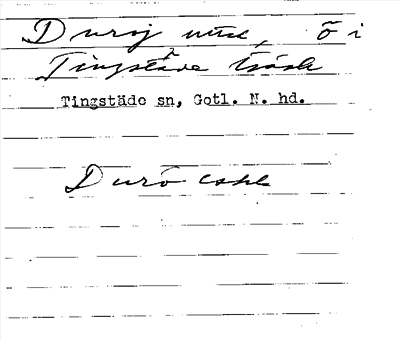 Duroj mus, ö i
Tingstäde träsk
Tingstäde sn, Gotl. N. hd.
Durö